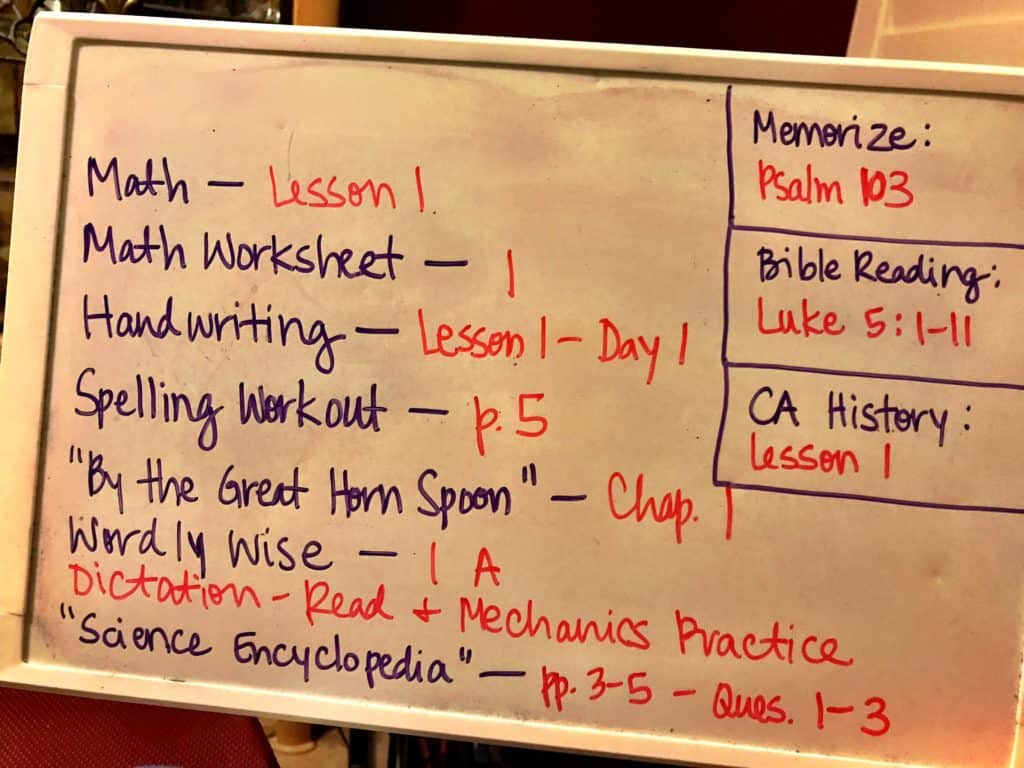 Math – Lesson 1
Math Worksheet – 1
Handwriting – Lesson 1 – Day 1
Spelling Workout – p. 5
"By the Great Horn Spoon" – Chap. 1
Wordly Wise – 1 A
Dictation – Read + Mechanics Practice
"Science Encyclopedia" – pp. 3-5 – Ques. 1-3
Memorize:
Psalm 103
Bible Reading:
Luke 5:1-11
CA History:
Lesson 1